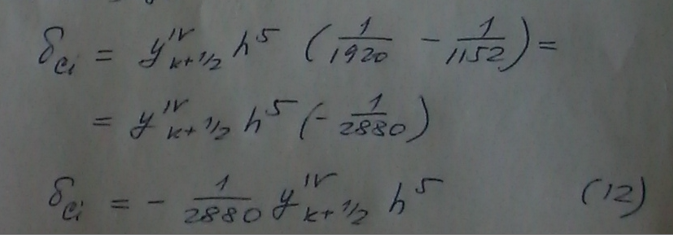 δ_ci = y^IV_{k+1/2} h^5 (1/1920 - 1/1152) =
= y^IV_{k+1/2} h^5 (- 1/2880)
δ_ci = - 1/2880 y^IV_{k+1/2} h^5 (12)